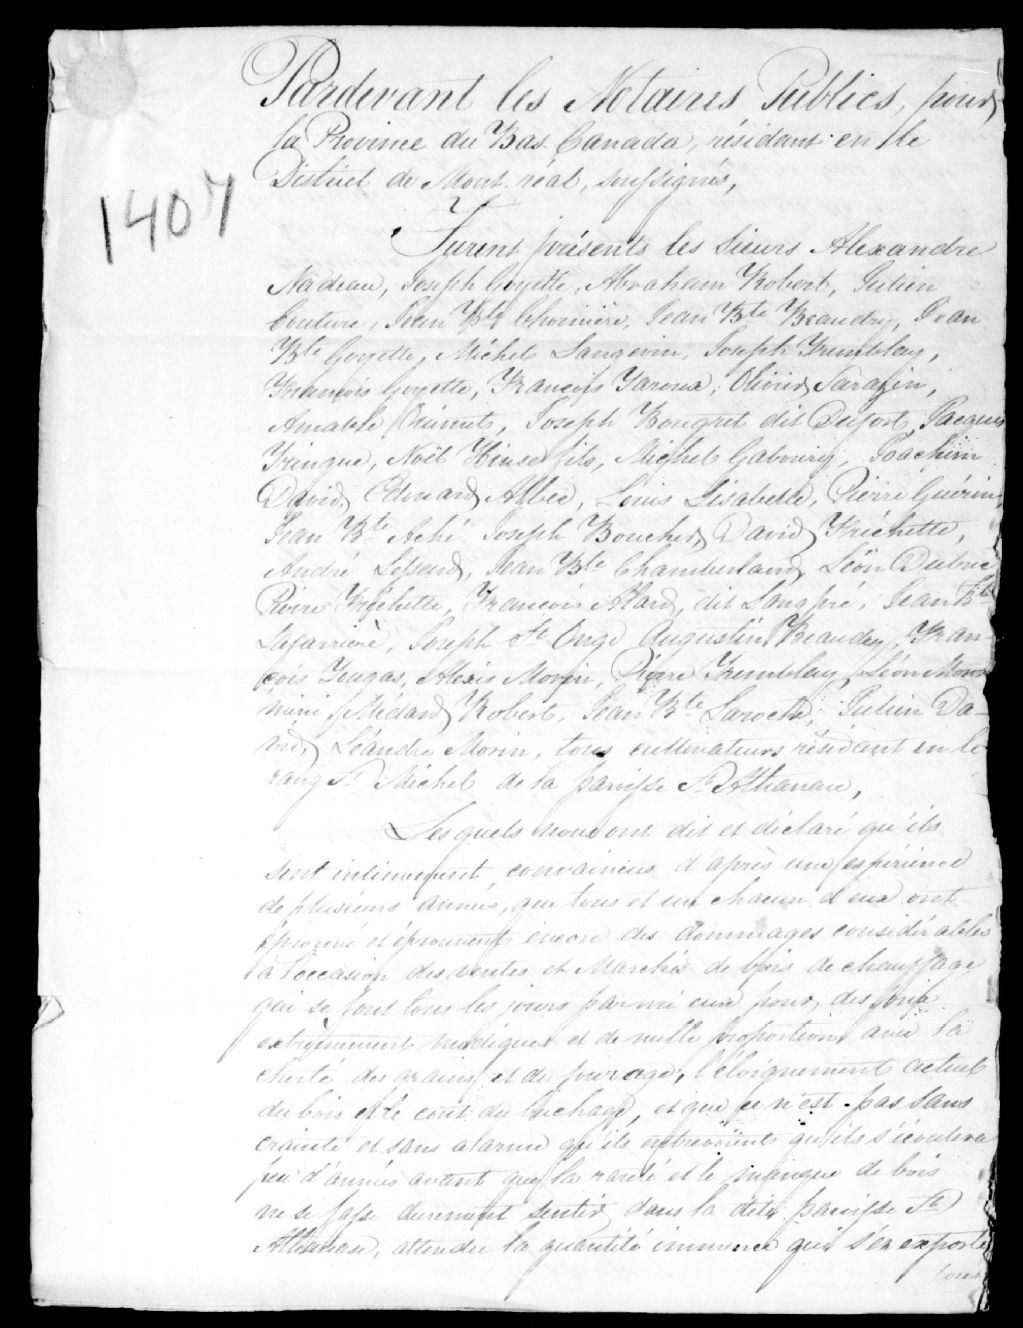 Pardevant les Notaires Publics, pour
la Province du Bas Canada, résidant en le
District de Mont réal, soussignés,
1407
Furent présents les Sieurs Alexandre
Nadeau, Joseph Goyette, Abraham Robert, Julien
Couture, Jean Bte Chorinière, Jean Bte Beaudry, Jean
Bte Goyette, Michel Langevin, Joseph Tremblay,
François Goyette, François Yaroux, Olivier Sarazin,
Amable Bougret dit Dufort, Jacques
Fringue, Noël Hinse fils, Michel Gaboury, Joachim
David, Edouard Albee, Louis Lisabelle, Pierre Guérin,
Jean Bte Aché, Joseph Boucher, David Fréchette,
André Lessard, Jean Bte Chamberland, Léon Dubuc
Pierre Fréchette, François Alard, dit Longpré, Jean Bte
Laferrière, Joseph St Onge Augustin Beaudry, Fran-
çois Fougas, Alexis Morin, Pierre Tremblay, Léon Mon
mini, Médard Robert, Jean Bte Laroche, Julien Da-
vid, Léandre Morin, tous cultivateurs résidant en le
rang St Michel de la paroisse St Athanase,
Lesquels nous ont dit et déclaré qu'ils
sont intimement convaincus d'après une expérience
de plusieurs années, que tous et un chacun d'eux ont
éprouvé et éprouvent encore des dommages considérables
à l'occasion des ventes et Marchés de bois de chauffage
qui se font tous les jours parmi eux pour des prix
extrêmement modiques et de nulle proportion avec la
cherté des grains et du fourage, l'éloignement actuel
du bois et le cout du buchage, et que ce n'est pas sans
crainte et sans alarme qu'ils entrevoient qu'ils s'écoulera
peu d'années avant que la rareté et le manque de bois
ne se fasse durement sentir dans la dite paroisse St
Athanase, attendu la quantité immense qui s'en exporte
tous